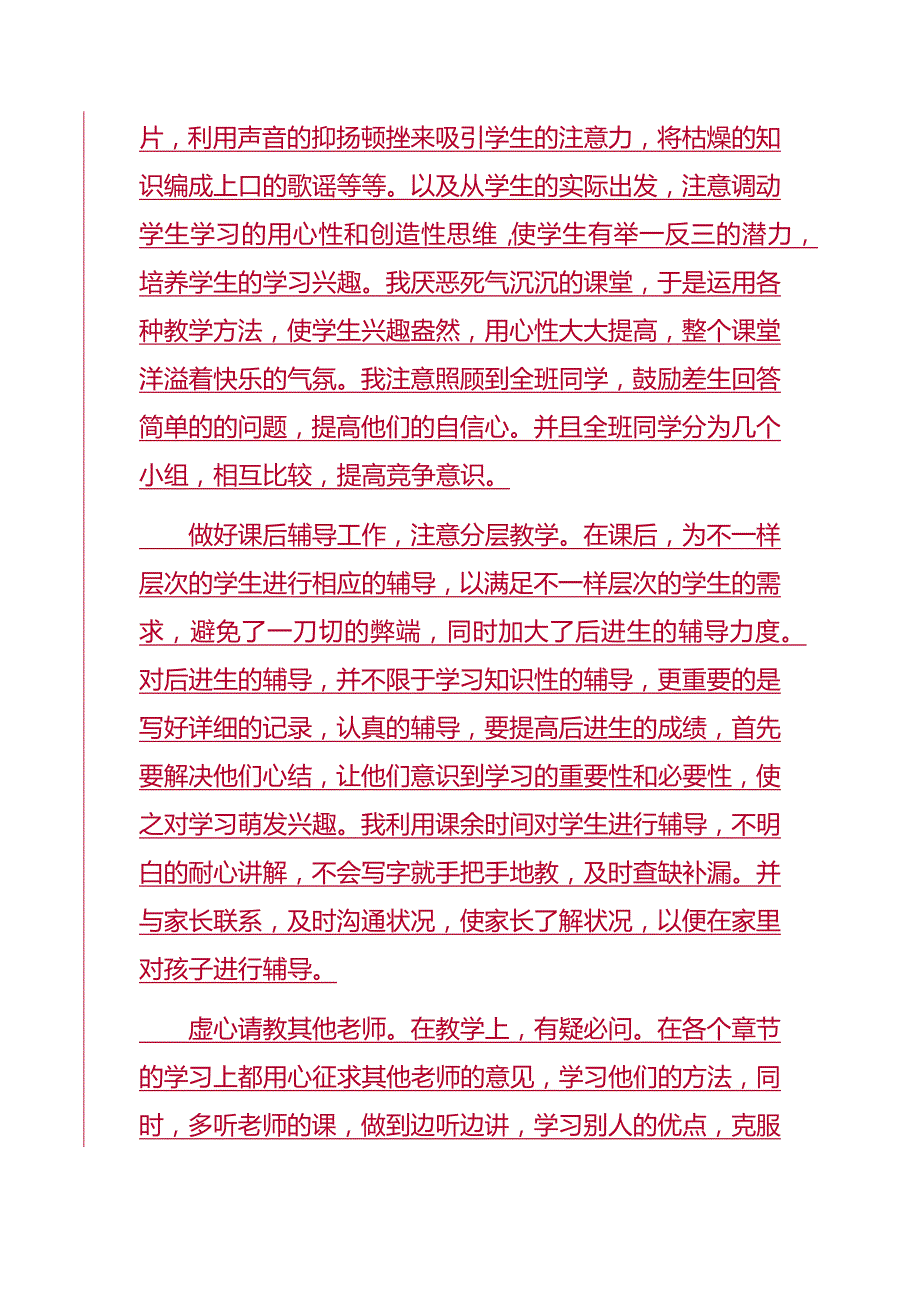 片，利用声音的抑扬顿挫来吸引学生的注意力，将枯燥的知
识编成上口的歌谣等等。以及从学生的实际出发，注意调动
学生学习的用心性和创造性思维,使学生有举一反三的潜力，
培养学生的学习兴趣。我厌恶死气沉沉的课堂，于是运用各
种教学方法，使学生兴趣盎然，用心性大大提高，整个课堂
洋溢着快乐的气氛。我注意照顾到全班同学，鼓励差生回答
简单的的问题，提高他们的自信心。并且全班同学分为几个
小组，相互比较，提高竞争意识。
做好课后辅导工作，注意分层教学。在课后，为不一样
层次的学生进行相应的辅导，以满足不一样层次的学生的需
求，避免了一刀切的弊端，同时加大了后进生的辅导力度。
对后进生的辅导，并不限于学习知识性的辅导，更重要的是
写好详细的记录，认真的辅导，要提高后进生的成绩，首先
要解决他们心结，让他们意识到学习的重要性和必要性，使
之对学习萌发兴趣。我利用课余时间对学生进行辅导，不明
白的耐心讲解，不会写字就手把手地教，及时查缺补漏。并
与家长联系，及时沟通状况，使家长了解状况，以便在家里
对孩子进行辅导。
虚心请教其他老师。在教学上，有疑必问。在各个章节
的学习上都用心征求其他老师的意见，学习他们的方法，同
时，多听老师的课，做到边听边讲，学习别人的优点，克服